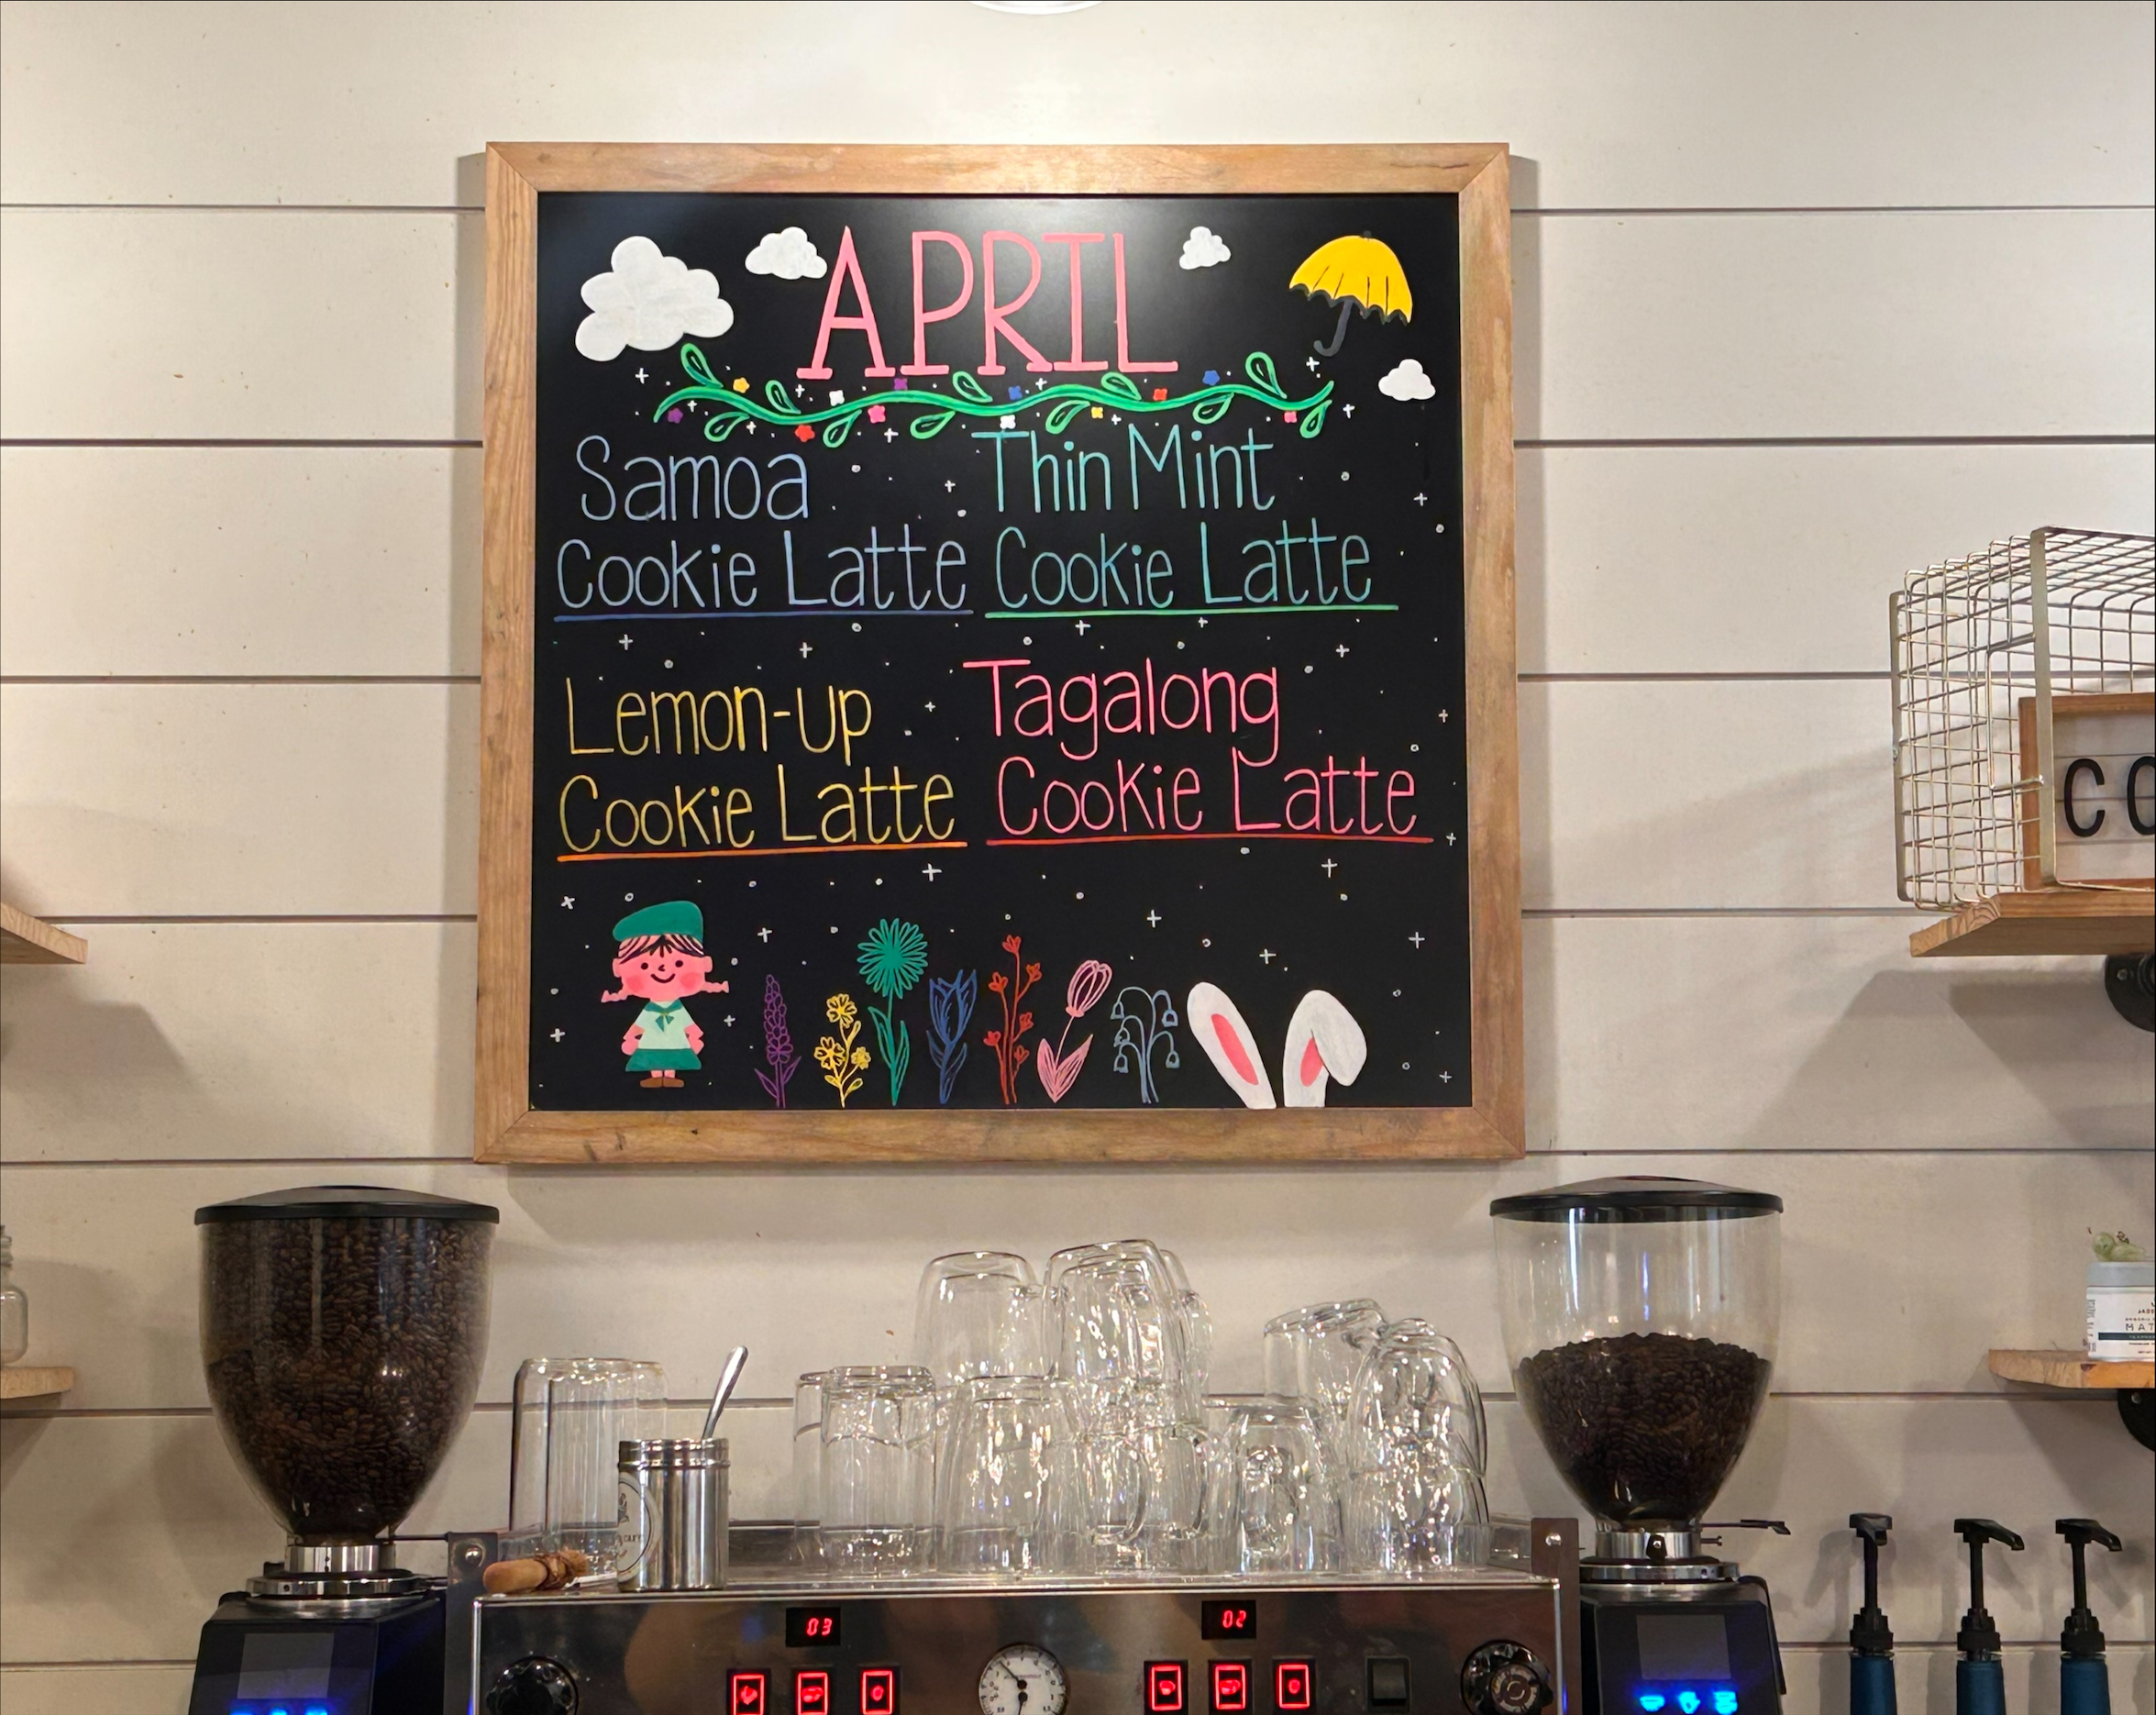 APRIL
Samoa
Cookie Latte
Thin Mint
Cookie Latte
Lemon-up
Cookie Latte
Tagalong
Cookie Latte
CO
MAT
03
02